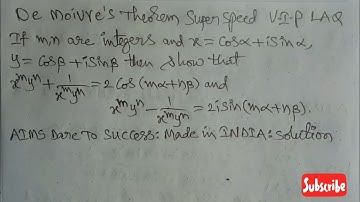 De Moivre's Theorem Super Speed V.I.P LAQ
If m,n are integers and x = Cosα + iSinα,
y = Cosβ + iSinβ then show that
xᵐyⁿ + 1/xᵐyⁿ = 2Cos(mα+nβ) and
xᵐyⁿ - 1/xᵐyⁿ = 2iSin(mα+nβ).
AIMS DARE TO SUCCESS: MADE IN INDIA: Solution
Subscribe